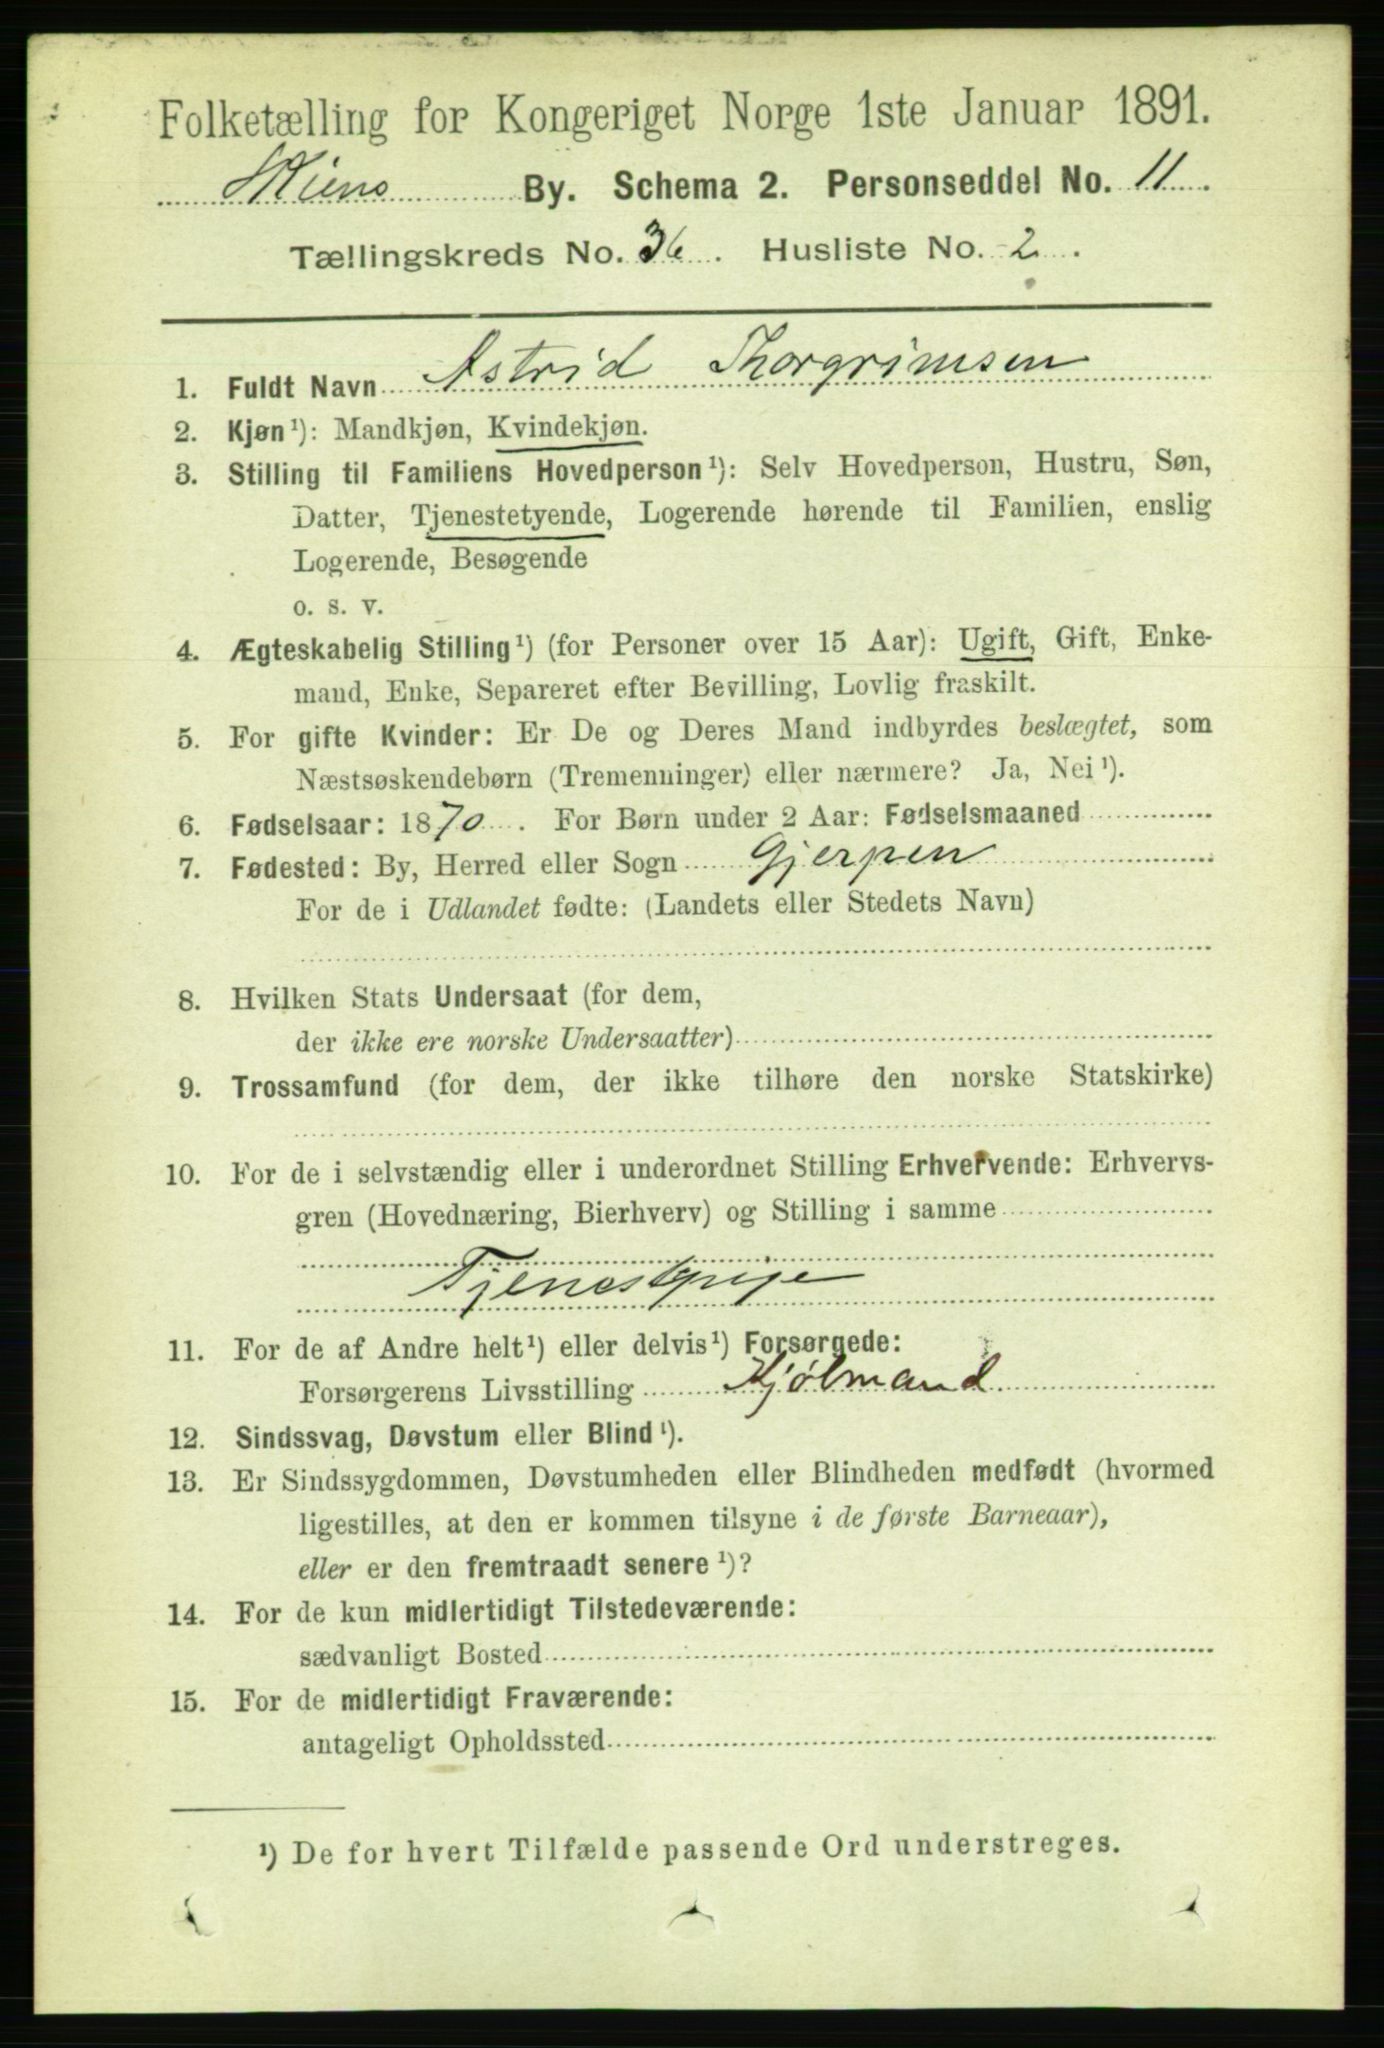 Folketælling for Kongeriget Norge 1ste Januar 1891.
Skiens By. Schema 2. Personseddel No. 11.
Tællingskreds No. 36. Husliste No. 2.
1. Fuldt Navn Astrid Thorgrimsen
2. Kjøn¹): Mandkjøn, Kvindekjøn.
3. Stilling til Familiens Hovedperson¹): Selv Hovedperson, Hustru, Søn,
Datter, Tjenestetyende, Logerende hørende til Familien, enslig
Logerende, Besøgende
o. s. v.
4. Ægteskabelig Stilling¹) (for Personer over 15 Aar): Ugift, Gift, Enke-
mand, Enke, Separeret efter Bevilling, Lovlig fraskilt.
5. For gifte Kvinder: Er De og Deres Mand indbyrdes beslægtet, som
Næstsøskendebørn (Tremenninger) eller nærmere? Ja, Nei¹).
6. Fødselsaar: 1870. For Børn under 2 Aar: Fødselsmaaned
7. Fødested: By, Herred eller Sogn Gjerpen
For de i Udlandet fødte: (Landets eller Stedets Navn)
8. Hvilken Stats Undersaat (for dem,
der ikke ere norske Undersaatter)
9. Trossamfund (for dem, der ikke tilhøre den norske Statskirke)
10. For de i selvstændig eller i underordnet Stilling Erhvervende: Erhvervs-
gren (Hovednæring, Bierhverv) og Stilling i samme
Tjenestpige
11. For de af Andre helt¹) eller delvis¹) Forsørgede:
Forsørgerens Livsstilling Kjølmand
12. Sindssvag, Døvstum eller Blind¹).
13. Er Sindssygdommen, Døvstumheden eller Blindheden medfødt (hvormed
ligestilles, at den er kommen tilsyne i de første Barneaar),
eller er den fremtraadt senere¹)?
14. For de kun midlertidigt Tilstedeværende:
sædvanligt Bosted
15. For de midlertidigt Fraværende:
antageligt Opholdssted
¹) De for hvert Tilfælde passende Ord understreges.